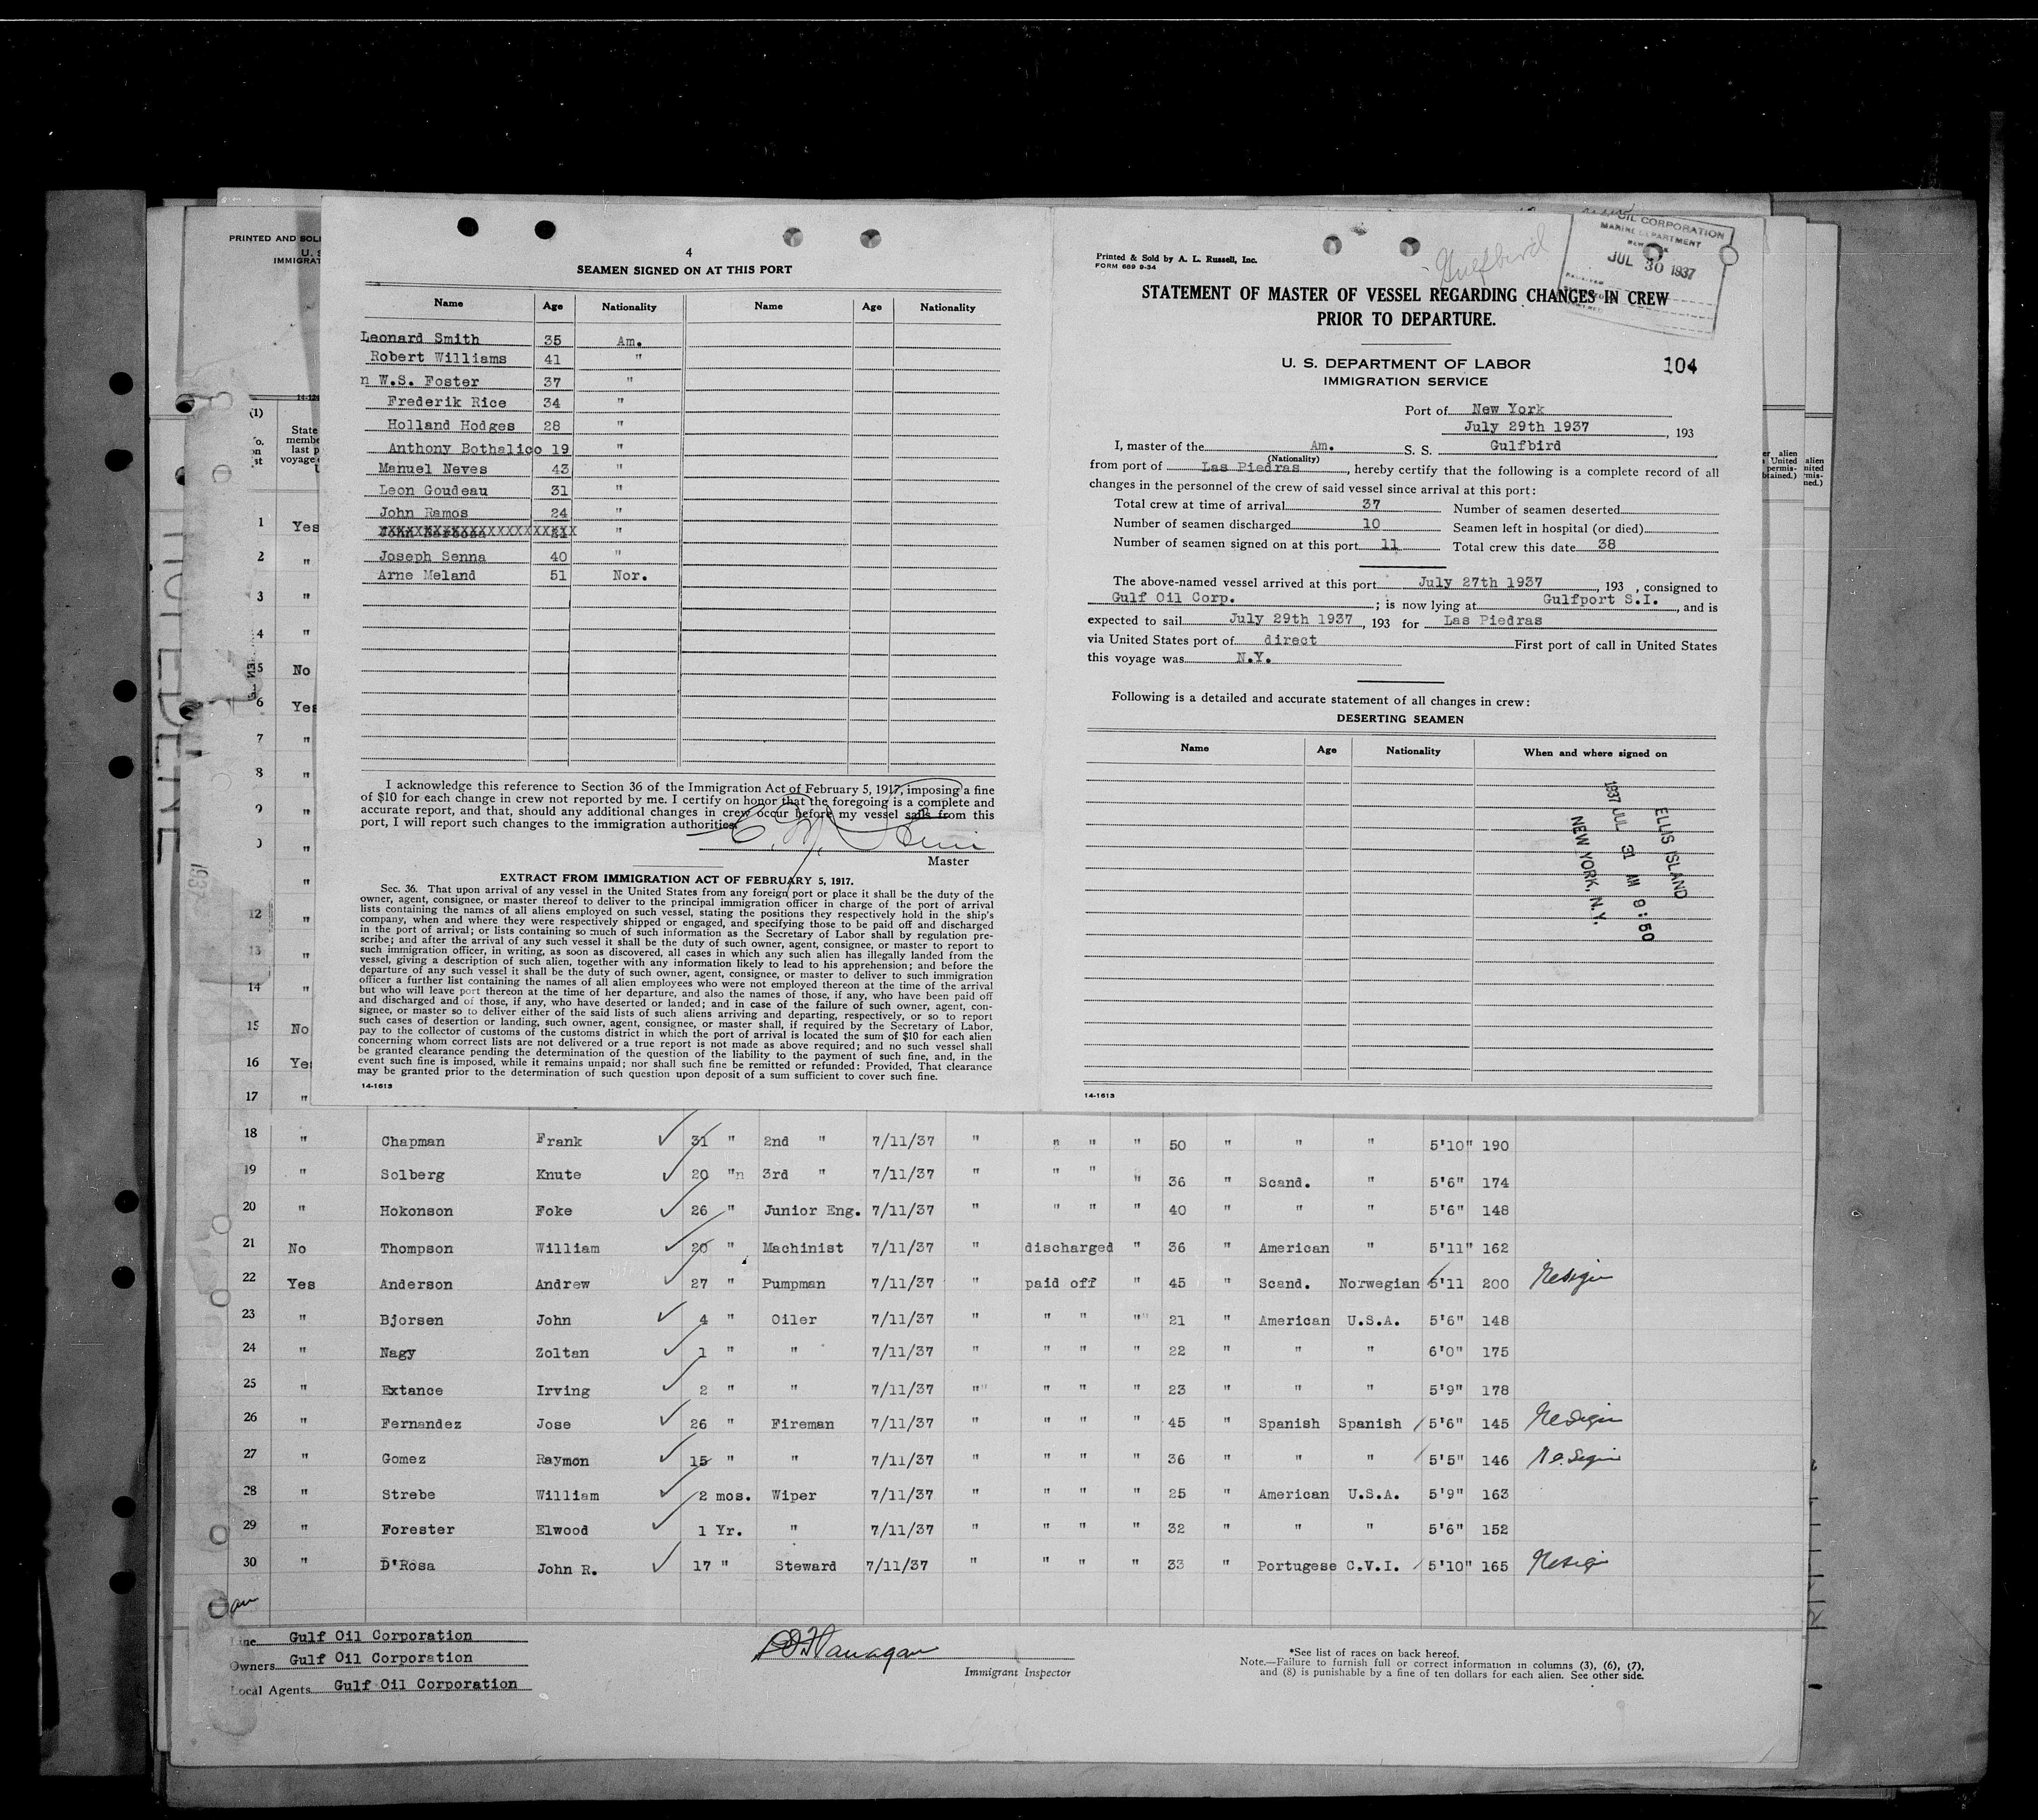 4
SEAMEN SIGNED ON AT THIS PORT
Name Age Nationality Name Age Nationality
Leonard Smith 35 Am.
Robert Williams 41 "
n W.S. Foster 37 "
Frederik Rice 34 "
Holland Hodges 28 "
Anthony Bothalico 19 "
Manuel Neves 43 "
Leon Goudeau 31 "
John Ramos 24 "
"
Joseph Senna 40 "
Arne Meland 51 Nor.
I acknowledge this reference to Section 36 of the Immigration Act of February 5, 1917, imposing a fine
of $10 for each change in crew not reported by me. I certify on honor that the foregoing is a complete and
accurate report, and that, should any additional changes in crew occur before my vessel sails from this
port, I will report such changes to the immigration authorities.
Master
EXTRACT FROM IMMIGRATION ACT OF FEBRUARY 5, 1917.
Sec. 36. That upon arrival of any vessel in the United States from any foreign port or place it shall be the duty of the
owner, agent, consignee, or master thereof to deliver to the principal immigration officer in charge of the port of arrival
lists containing the names of all aliens employed on such vessel, stating the positions they respectively hold in the ship's
company, when and where they were respectively shipped or engaged, and specifying those to be paid off and discharged
in the port of arrival; or lists containing so much of such information as the Secretary of Labor shall by regulation pre-
scribe; and after the arrival of any such vessel it shall be the duty of such owner, agent, consignee, or master to report to
such immigration officer, in writing, as soon as discovered, all cases in which any such alien has illegally landed from the
vessel, giving a description of such alien, together with any information likely to lead to his apprehension; and before the
departure of any such vessel it shall be the duty of such owner, agent, consignee, or master to deliver to such immigration
officer a further list containing the names of all alien employees who were not employed thereon at the time of the arrival
but who will leave port thereon at the time of her departure, and also the names of those, if any, who have been paid off
and discharged and of those, if any, who have deserted or landed; and in case of the failure of such owner, agent, con-
signee, or master so to deliver either of the said lists of such aliens arriving and departing, respectively, or so to report
such cases of desertion or landing, such owner, agent, consignee, or master shall, if required by the Secretary of Labor,
pay to the collector of customs of the customs district in which the port of arrival is located the sum of $10 for each alien
concerning whom correct lists are not delivered or a true report is not made as above required; and no such vessel shall
be granted clearance pending the determination of the question of the liability to the payment of such fine, and, in the
event such fine is imposed, while it remains unpaid; nor shall such fine be remitted or refunded: Provided, That clearance
may be granted prior to the determination of such question upon deposit of a sum sufficient to cover such fine.
14-1613
Printed & Sold by A. L. Russell, Inc.
FORM 689 9-34
Gulfbird
OIL CORPORATION
MARINE DEPARTMENT
JUL 30 1937
STATEMENT OF MASTER OF VESSEL REGARDING CHANGES IN CREW
PRIOR TO DEPARTURE.
U. S. DEPARTMENT OF LABOR
IMMIGRATION SERVICE
104
Port of New York
July 29th 1937, 193
I, master of the Am. S. S. Gulfbird
(Nationality)
from port of Las Piedras, hereby certify that the following is a complete record of all
changes in the personnel of the crew of said vessel since arrival at this port:
Total crew at time of arrival 37 Number of seamen deserted
Number of seamen discharged 10 Seamen left in hospital (or died)
Number of seamen signed on at this port 11 Total crew this date 38
The above-named vessel arrived at this port July 27th 1937, 193 , consigned to
Gulf Oil Corp. ; is now lying at Gulfport S.I., and is
expected to sail July 29th 1937, 193 for Las Piedras
via United States port of direct First port of call in United States
this voyage was N.Y.
Following is a detailed and accurate statement of all changes in crew:
DESERTING SEAMEN
Name Age Nationality When and where signed on
ELLIS ISLAND
1937 JUL 31 AM 9:50
NEW YORK, N.Y.
14-1613
PRINTED AND SOL
U. S
IMMIGRAT
(1)
State
membe
last p
voyage
1 Yes
2 "
3 "
4 "
5 No
6 Yes
7 "
8 "
9 "
"
"
12 "
13 "
14 "
15 No
16 Yes
17 "
18 " Chapman Frank 31 " 2nd " 7/11/37 " " " " 50 " " " 5'10" 190
19 " Solberg Knute 20 "n 3rd " 7/11/37 " " " " 36 " Scand. " 5'6" 174
20 " Hokonson Foke 26 " Junior Eng. 7/11/37 " " " " 40 " " " 5'6" 148
21 No Thompson William 20 " Machinist 7/11/37 " discharged " 36 " American " 5'11" 162
22 Yes Anderson Andrew 27 " Pumpman 7/11/37 " paid off " 45 " Scand. Norwegian 5'11 200
23 " Bjorsen John 4 " Oiler 7/11/37 " " " " 21 " American U.S.A. 5'6" 148
24 " Nagy Zoltan 1 " " 7/11/37 " " " " 22 " " " 6'0" 175
25 " Extance Irving 2 " " 7/11/37 " " " " 23 " " " 5'9" 178
26 " Fernandez Jose 26 " Fireman 7/11/37 " " " " 45 " Spanish Spanish 5'6" 145
27 " Gomez Raymon 15 " " 7/11/37 " " " " 36 " " " 5'5" 146
28 " Strebe William 2 mos. Wiper 7/11/37 " " " " 25 " American U.S.A. 5'9" 163
29 " Forester Elwood 1 Yr. " 7/11/37 " " " " 32 " " " 5'6" 152
30 " D'Rosa John R. 17 " Steward 7/11/37 " " " " 33 " Portugese C.V.I. 5'10" 165
Line Gulf Oil Corporation
Owners Gulf Oil Corporation
Local Agents Gulf Oil Corporation
Immigrant Inspector
*See list of races on back hereof.
Note.—Failure to furnish full or correct information in columns (3), (6), (7),
and (8) is punishable by a fine of ten dollars for each alien. See other side.